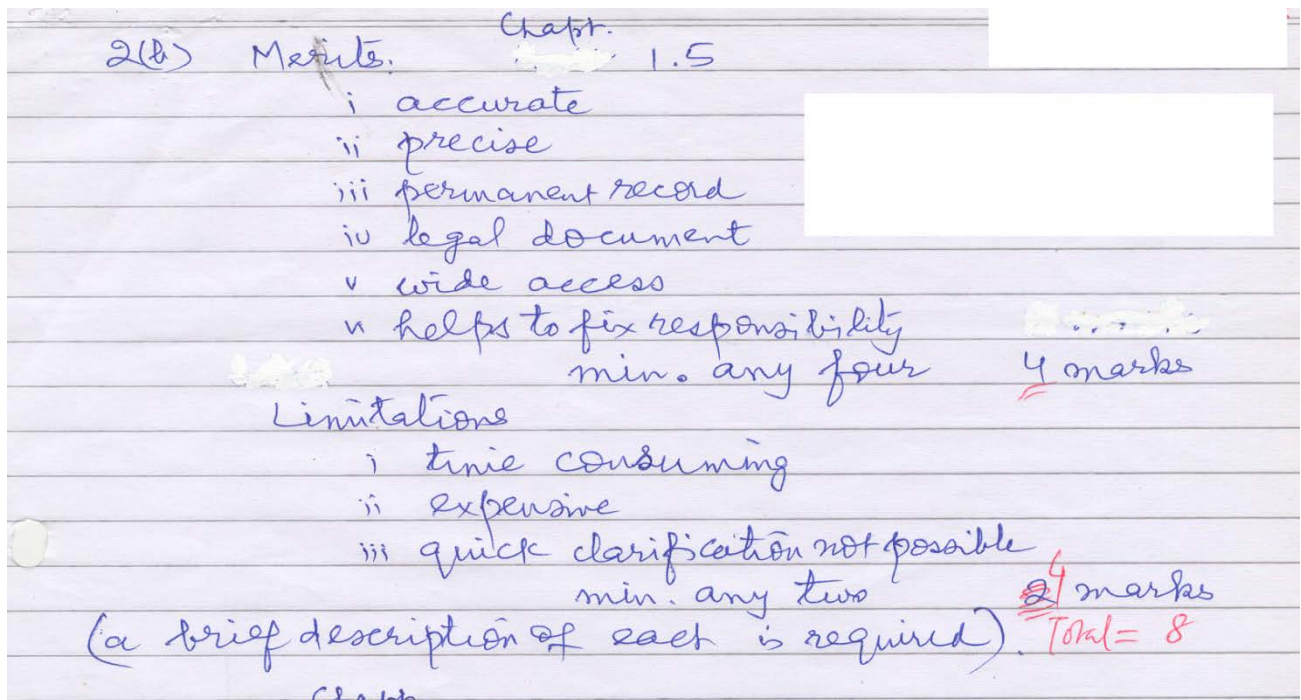 Chapt.
2(b) Merits. 1.5
i accurate
ii precise
iii permanent record
iv legal document
v wide access
vi helps to fix responsibility
min. any four 4 marks
Limitations
i time consuming
ii expensive
iii quick clarification not possible
min. any two 4 marks
(a brief description of each is required). Total = 8